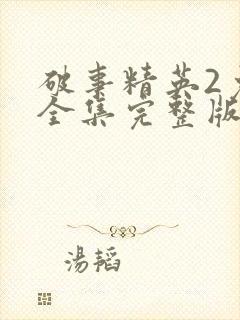 破事精英2
全集完整版
湯韬